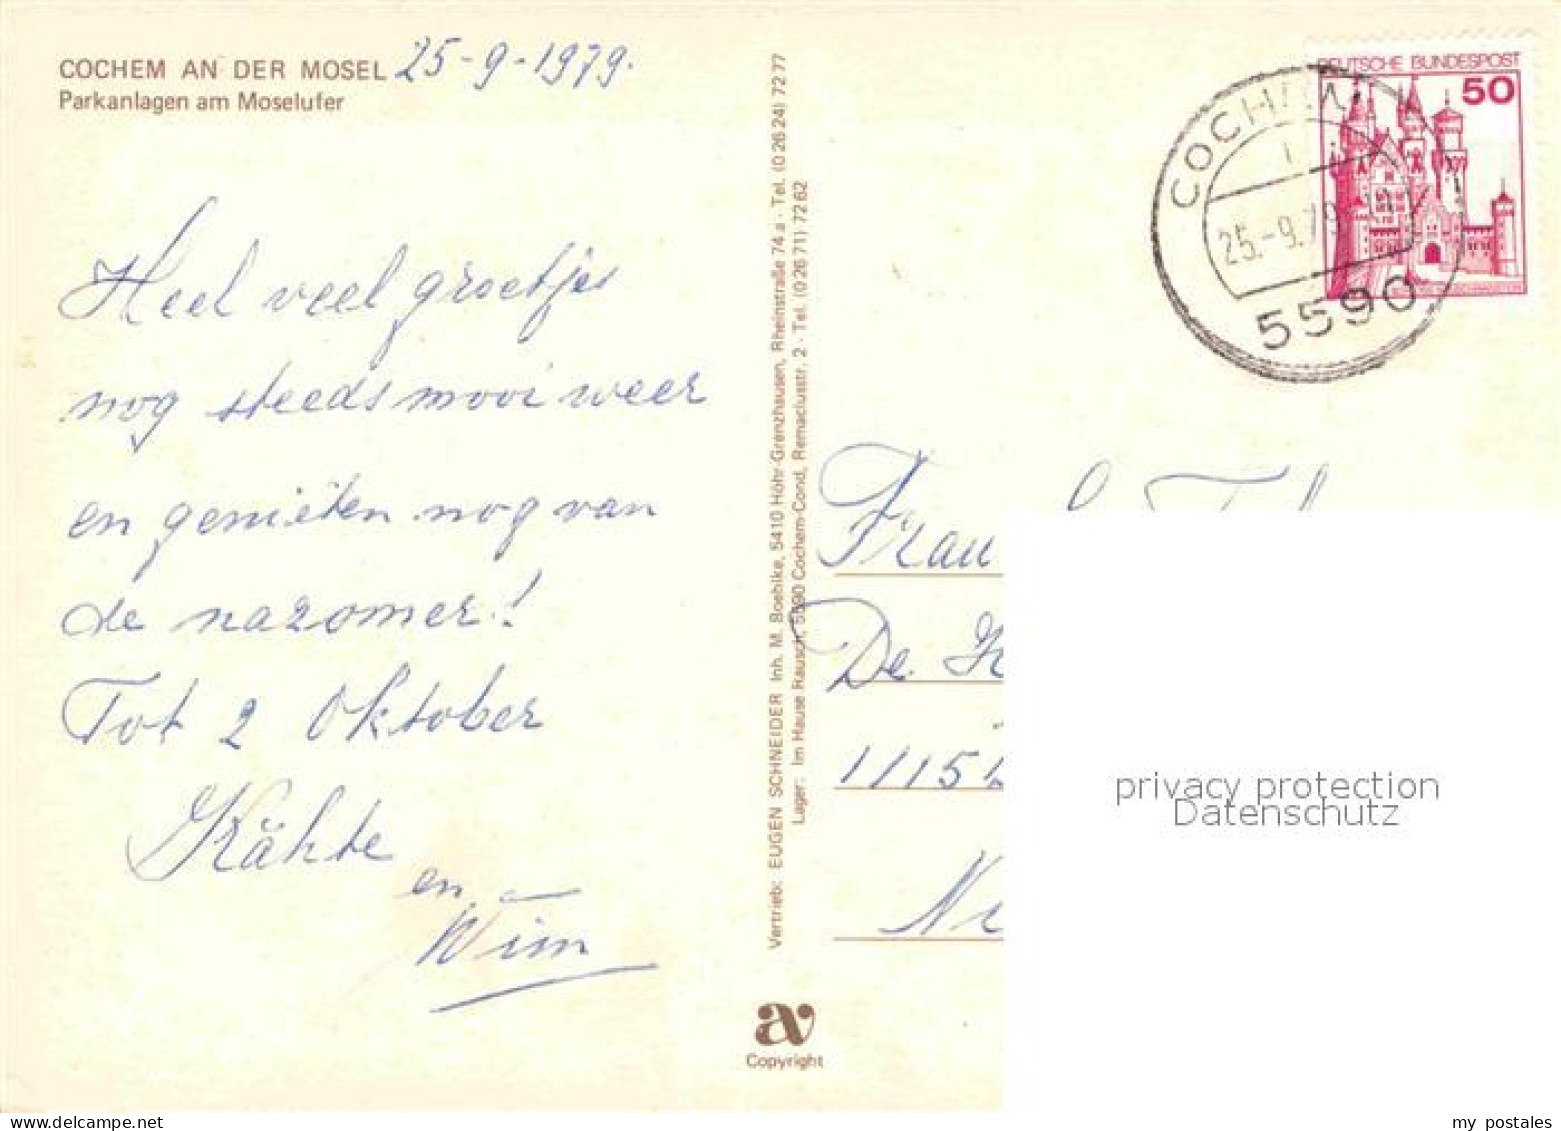 COCHEM AN DER MOSEL 25-9-1979.
Parkanlagen am Moselufer
Heel veel groetjes
nog steeds mooi weer
en genieten nog van
de nazomer!
Tot 2 Oktober
Kähte
en
Wim
Vertrieb: EUGEN SCHNEIDER Inh. M. Boehlke, 5410 Höhr-Grenzhausen, Rheinstraße 74 a · Tel. (0 26 24) 72 77
Lager: Im Hause Rausch, 5590 Cochem-Cond, Remaclusstr. 2 · Tel. (0 26 71) 72 62
av
Copyright
DEUTSCHE BUNDESPOST
50
COCHEM
25.-9.79
5590
Frau
De
1115
privacy protection
Datenschutz
my postales